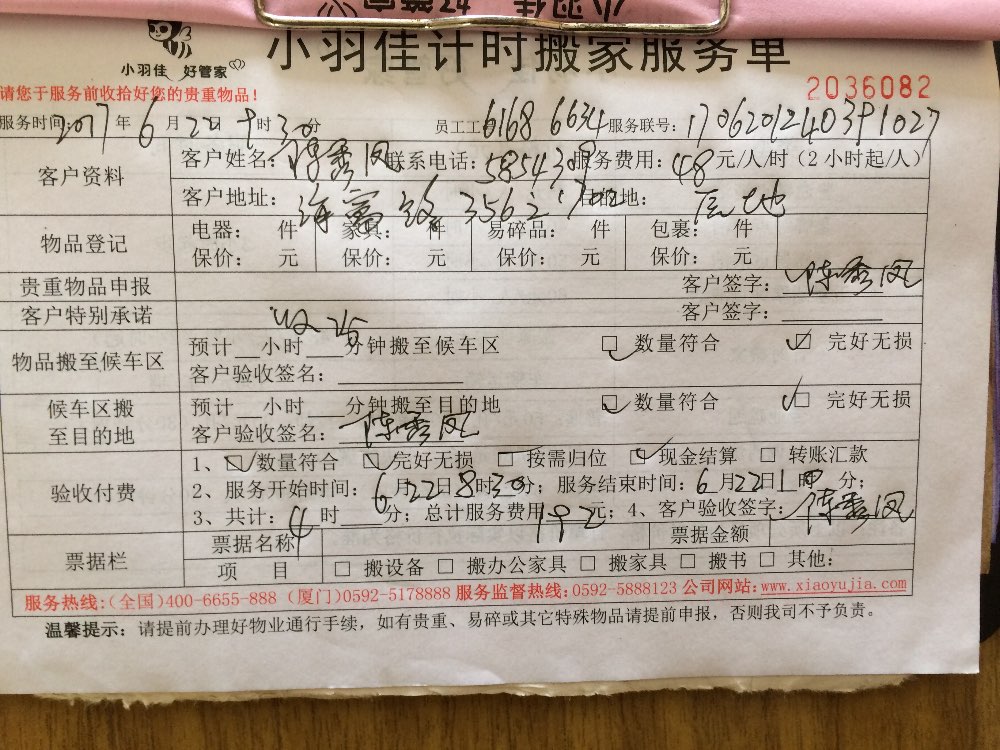 小羽佳 好管家
小羽佳计时搬家服务单
请您于服务前收拾好您的贵重物品！
2036082
服务时间: 2017年6月22日 时30分 员工工 6168 6634 服务联号:
客户资料
客户姓名: 陈秀凤 联系电话: 服务费用: 48元/人/时（2小时起/人）
客户地址: 目的地:
物品登记
电器: 件 家具: 件 易碎品: 件 包裹: 件
保价: 元 保价: 元 保价: 元 保价: 元
贵重物品申报 客户签字: 陈秀凤
客户特别承诺 客户签字:
物品搬至候车区
预计__小时___分钟搬至候车区 □ 数量符合 ☑ 完好无损
客户验收签名:
候车区搬至目的地
预计__小时___分钟搬至目的地 ☑ 数量符合 ☑ 完好无损
客户验收签名: 陈秀凤
验收付费
1、☑ 数量符合 ☑ 完好无损 □ 按需归位 ☑ 现金结算 □ 转账汇款
2、服务开始时间: 6月22日8时30分; 服务结束时间: 6月22日 分;
3、共计: 4时___分; 总计服务费用 元; 4、客户验收签字: 陈秀凤
票据栏
票据名称 票据金额
项 目 □ 搬设备 □ 搬办公家具 □ 搬家具 □ 搬书 □ 其他:
服务热线:(全国)400-6655-888 (厦门)0592-5178888 服务监督热线:0592-5888123 公司网站:www.xiaoyujia.com
温馨提示: 请提前办理好物业通行手续，如有贵重、易碎或其它特殊物品请提前申报，否则我司不予负责。